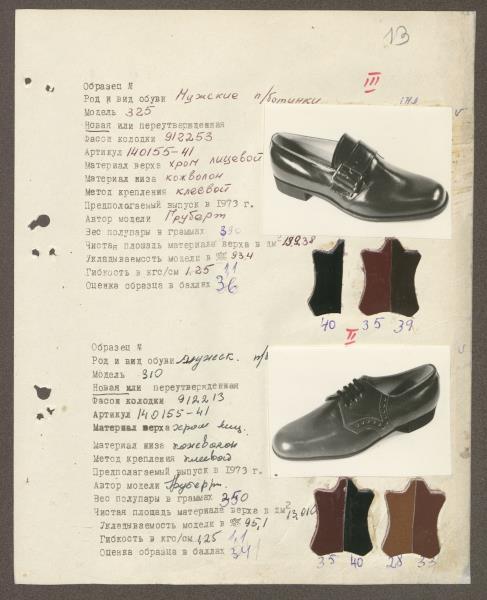 13
III
Образец №
Род и вид обуви Мужские п/ботинки
Модель 325
Новая или переутвержденная
Фасон колодки 912253
Артикул 140155-41
Материал верха хром лицевой
Материал низа кожволон
Метод крепления клеевой
Предполагаемый выпуск в 1973 г.
Автор модели Груберт
Вес полупары в граммах
Чистая площадь материала верха в дм²
Укладываемость модели в 93,4
Гибкость в кгс/см 1,25 1,1
Оценка образца в баллах 36
40 35 39
II
Образец №
Род и вид обуви мужск.
Модель 310
Новая или переутвержденная
Фасон колодки 912213
Артикул 140155-41
Материал верха хром лиц.
Материал низа кожволон
Метод крепления клеевой
Предполагаемый выпуск в 1973 г.
Автор модели Груберт.
Вес полупары в граммах 350
Чистая площадь материала верха в дм² 13,010
Укладываемость модели в 95,1
Гибкость в кгс/см 1,25 1,1
Оценка образца в баллах
35 40 28 33